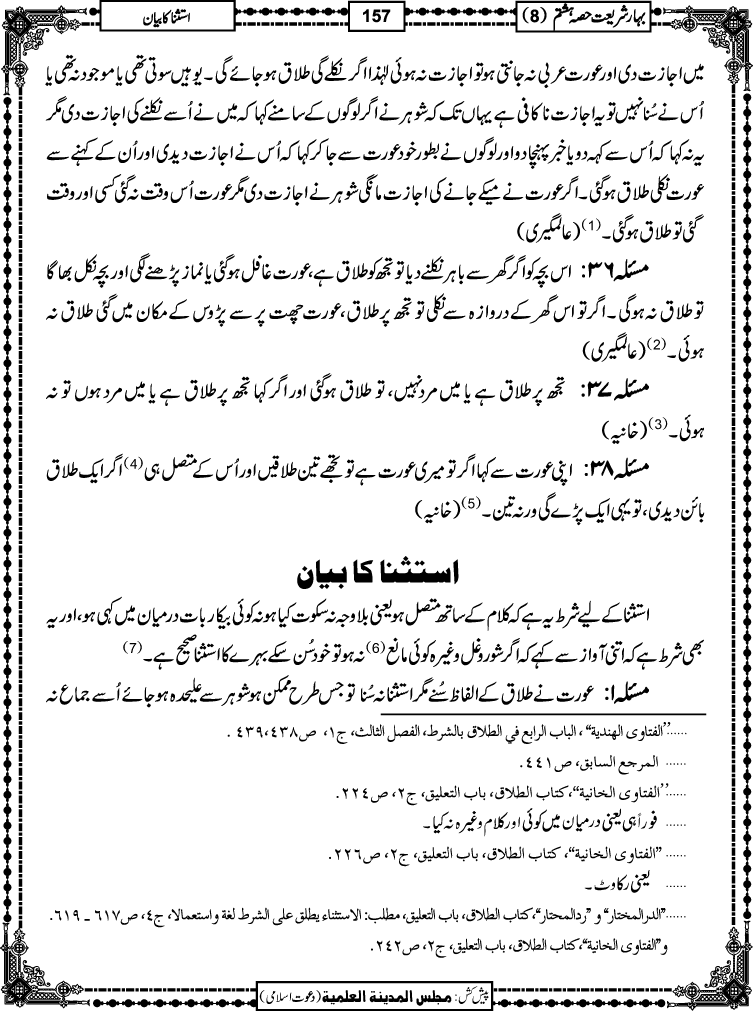 بہار شریعت حصہ ہشتم (8)
157
استثنا کا بیان
میں اجازت دی اور عورت عربی نہ جانتی ہو تو اجازت نہ ہوئی لہٰذا اگر نکلے گی طلاق ہو جائے گی۔ یوہیں سوتی تھی یا موجود نہ تھی یا
اُس نے سُنا نہیں تو یہ اجازت ناکافی ہے یہاں تک کہ شوہر نے اگر لوگوں کے سامنے کہا کہ میں نے اُسے نکلنے کی اجازت دی مگر
یہ نہ کہا کہ اُس سے کہہ دو یا خبر پہنچا دو اور لوگوں نے بطور خود عورت سے جا کر کہا کہ اُس نے اجازت دیدی اور اُن کے کہنے سے
عورت نکلی طلاق ہوگئی۔ اگر عورت نے میکے جانے کی اجازت مانگی شوہر نے اجازت دی مگر عورت اُس وقت نہ گئی کسی اور وقت
گئی تو طلاق ہوگئی۔(1) (عالمگیری)
مسئلہ ۳۶: اس بچہ کو اگر گھر سے باہر نکلنے دیا تو تجھ کو طلاق ہے، عورت غافل ہوگئی یا نماز پڑھنے لگی اور بچہ نکل بھاگا
تو طلاق نہ ہوگی۔ اگر تو اس گھر کے دروازہ سے نکلی تو تجھ پر طلاق، عورت چھت پر سے پڑوس کے مکان میں گئی طلاق نہ
ہوئی۔(2) (عالمگیری)
مسئلہ ۳۷: تجھ پر طلاق ہے یا میں مرد نہیں، تو طلاق ہوگئی اور اگر کہا تجھ پر طلاق ہے یا میں مرد ہوں تو نہ
ہوئی۔(3) (خانیہ)
مسئلہ ۳۸: اپنی عورت سے کہا اگر تو میری عورت ہے تو تجھے تین طلاقیں اور اُس کے متصل ہی (4) اگر ایک طلاق
بائن دیدی، تو یہی ایک پڑے گی ورنہ تین۔(5) (خانیہ)
استثنا کا بیان
استثنا کے لیے شرط یہ ہے کہ کلام کے ساتھ متصل ہو یعنی بلاوجہ نہ سکوت کیا ہو نہ کوئی بیکار بات درمیان میں کہی ہو، اور یہ
بھی شرط ہے کہ اتنی آواز سے کہے کہ اگر شور و غل وغیرہ کوئی مانع (6) نہ ہو تو خود سُن سکے بہرے کا استثنا صحیح ہے۔(7)
مسئلہ ۱: عورت نے طلاق کے الفاظ سُنے مگر استثنا نہ سُنا تو جس طرح ممکن ہو شوہر سے علیحدہ ہو جائے اُسے جماع نہ
......"الفتاوی الهندية"، الباب الرابع في الطلاق بالشرط، الفصل الثالث، ج۱، ص۴۳۸،۴۳۹.
...... المرجع السابق، ص۴۴۱.
......"الفتاوی الخانية"، کتاب الطلاق، باب التعليق، ج۲، ص۲۲۴.
...... فوراً ہی یعنی درمیان میں کوئی اور کلام وغیرہ نہ کیا۔
...... "الفتاوی الخانية"، کتاب الطلاق، باب التعليق، ج۲، ص۲۲۶.
...... یعنی رکاوٹ۔
......"الدرالمختار" و "ردالمحتار"، کتاب الطلاق، باب التعليق، مطلب: الاستثناء يطلق علی الشرط لغة واستعمالا، ج۴، ص۶۱۷ ـ ۶۱۹.
و"الفتاوی الخانية"، کتاب الطلاق، باب التعليق، ج۲، ص۲۴۲.
پیش کش: مجلس المدينة العلمية (دعوت اسلامی)